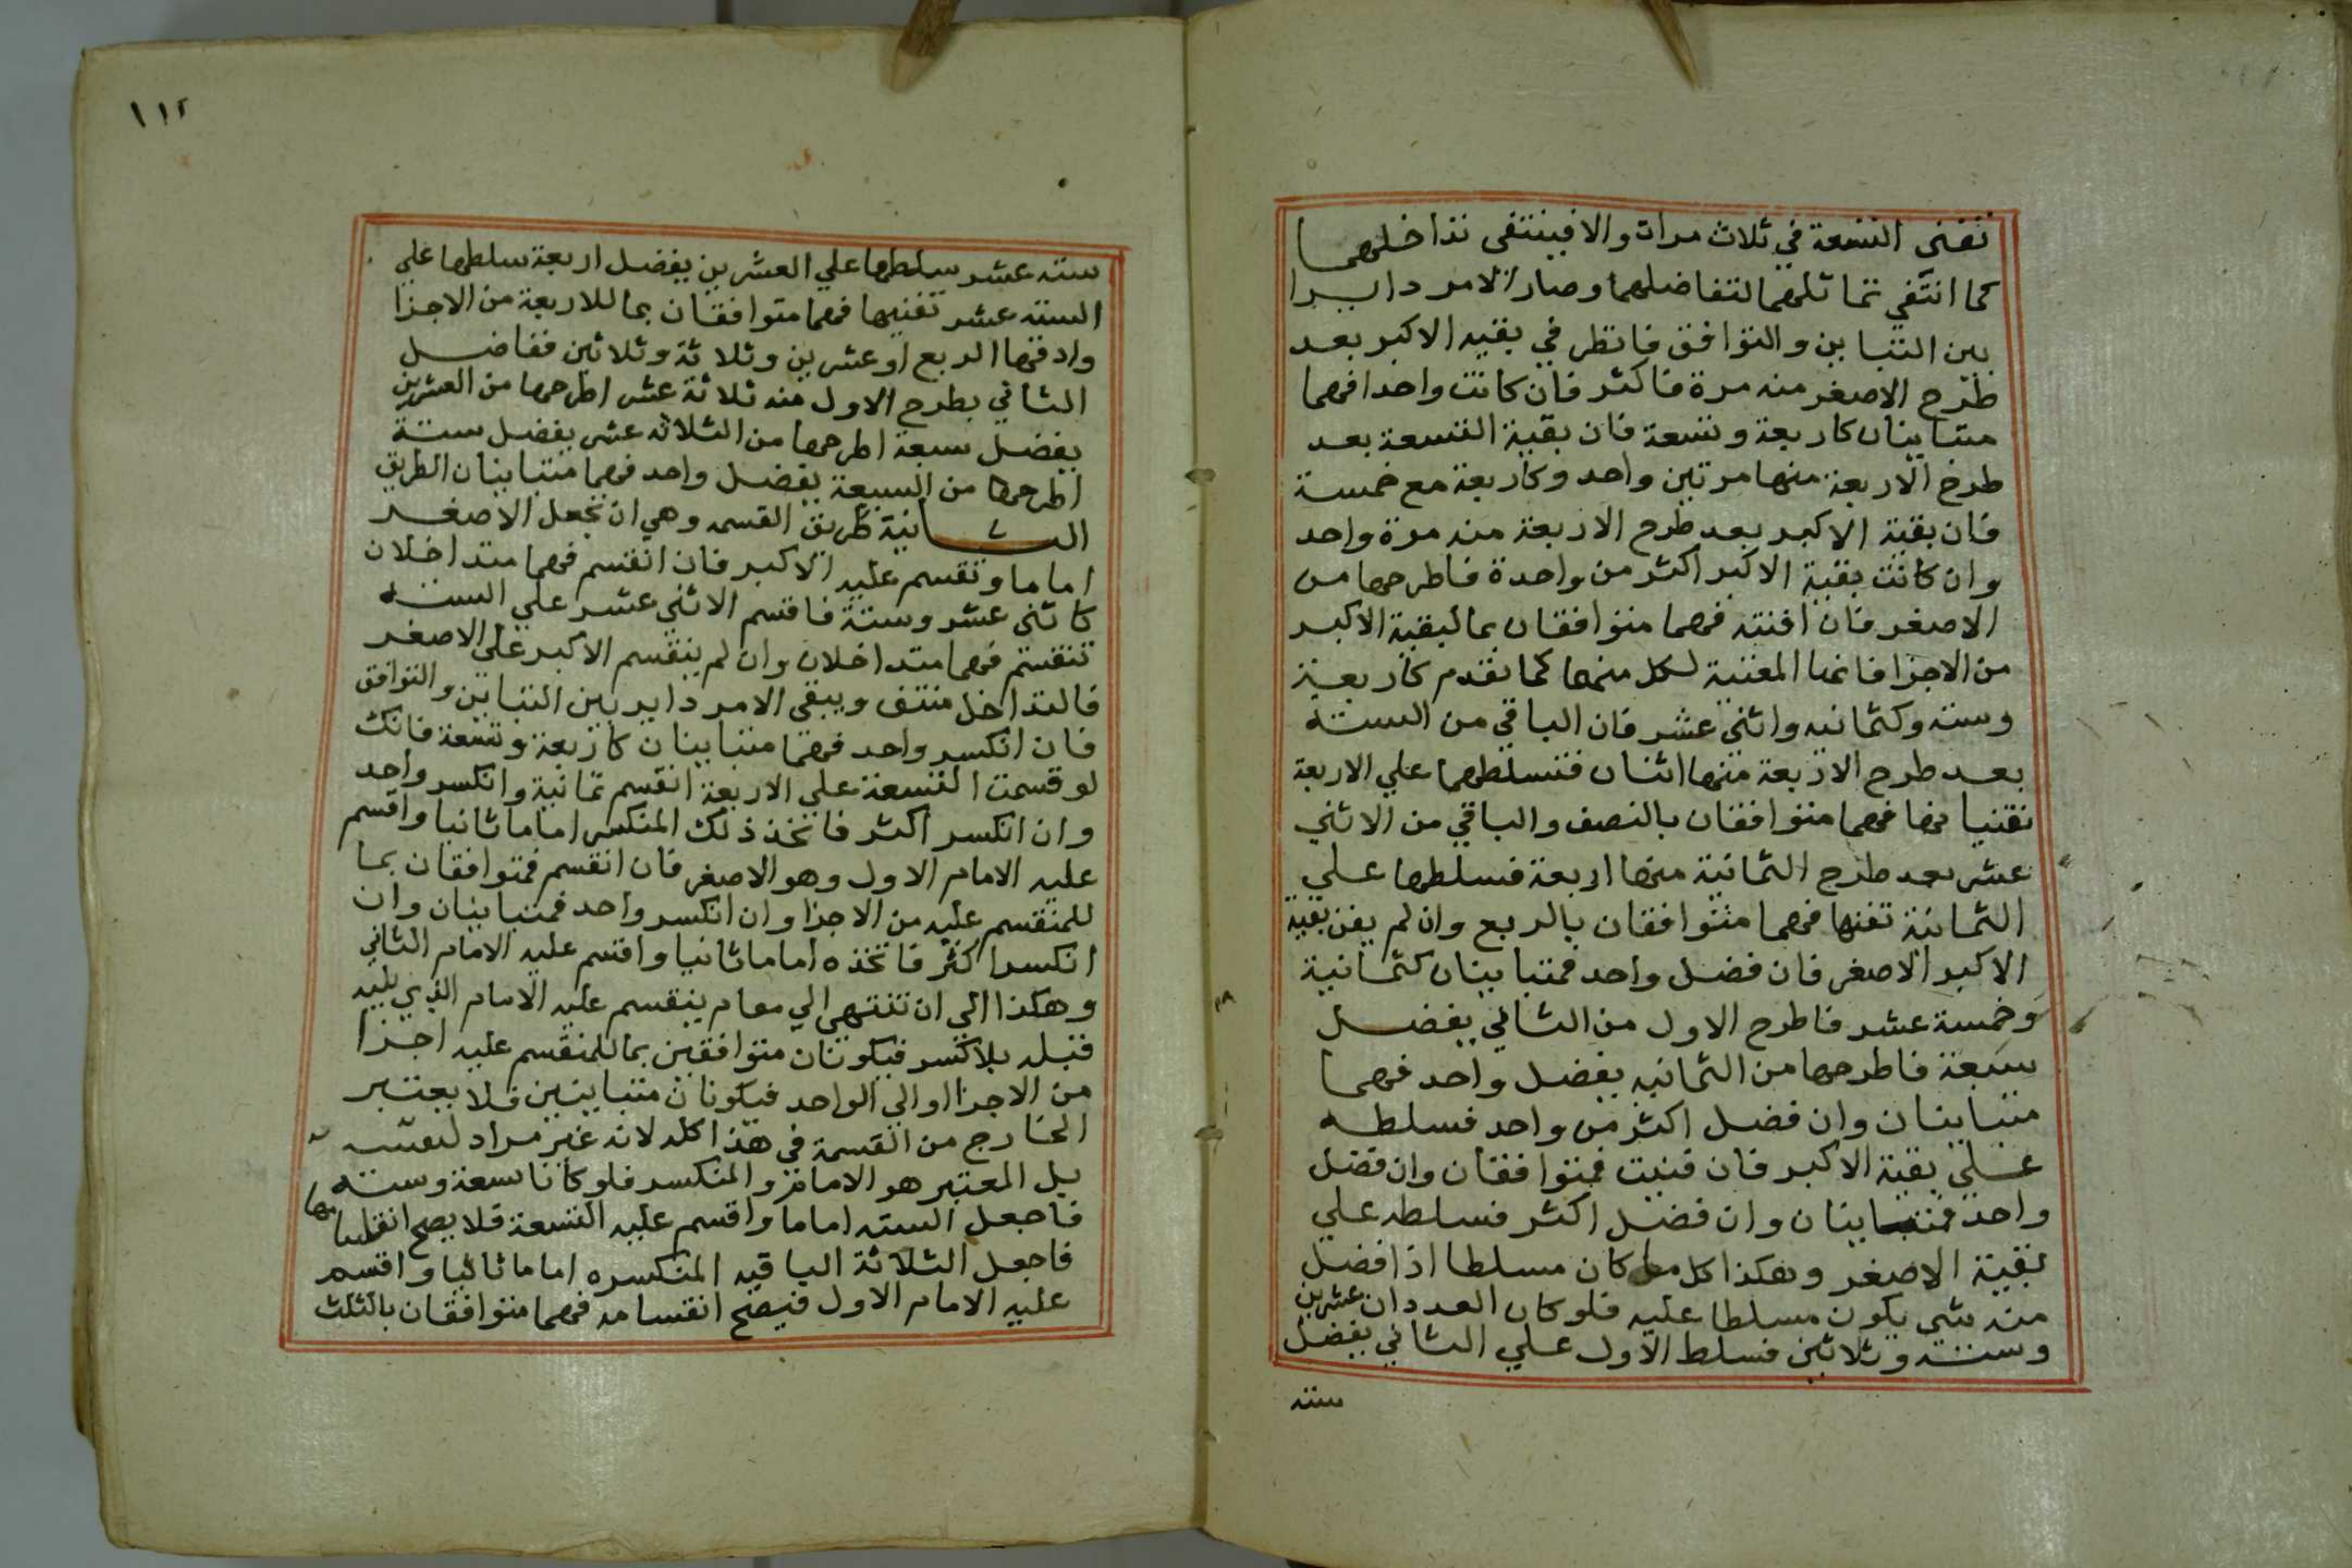 تفنى التسعة في ثلاث مرات والا فينتفى تداخلهما
كما انتفي تماثلهما لتفاضلهما وصار الامر دايرا
بين التباين والتوافق فانظر في بقيه الاكبر بعد
طرح الاصغر منه مرة فاكثر فان كانت واحدا فهما
متباينان كاربعة وتسعة فان بقية التسعة بعد
طرح الاربعة منها مرتين واحد وكاربعة مع خمسة
فان بقية الاكبر بعد طرح الاربعة منه مرة واحد
وان كانت بقية الاكبر اكثر من واحدة فاطرحها من
الاصغر فان افنته فهما متوافقان بما لبقية الاكبر
من الاجزا فانها المفنية لكل منهما كما تقدم كاربعة
وسته وكثمانيه واثني عشر فان الباقي من الستة
بعد طرح الاربعة منها اثنان فتسلطهما علي الاربعة
فهما متوافقان بالنصف والباقي من الاثني
عشر بعد طرح الثمانية منها اربعة فسلطها علي
الثمانية تفنها فهما متوافقان بالربع وان لم يفن بقية
الاكبر الاصغر فان فضل واحد فمتباينان كثمانية
وخمسة عشر فاطرح الاول من الثاني يفضل
سبعة فاطرحها من الثمانيه يفضل واحد فهما
متباينان وان فضل اكثر من واحد فسلطه
علي بقية الاكبر فان فنيت فمتوافقان وان فضل
واحد فمتباينان وان فضل اكثر فسلطه علي
بقية الاصغر وهكذا كل ما كان مسلطا اذا فضل
منه شي يكون مسلطا عليه فلو كان العددان عشرين
وستة وثلاثين فسلط الاول علي الثاني يفضل
سته
١١٢
سته عشر سلطها علي العشرين يفضل اربعة سلطها علي
الستة عشر تفنيها فهما متوافقان بما للاربعة من الاجزا
وادقها الربع او عشرين وثلاثة وثلاثين ففاضل
الثاني بطرح الاول منه ثلاثة عشر اطرحها من العشرين
يفضل سبعة اطرحها من الثلاثه عشر يفضل ستة
اطرحها من السبعة يفضل واحد فهما متباينان الطريق
الثانية طريق القسمه وهي ان تجعل الاصغر
اماما وتقسم عليه الاكبر فان انقسم فهما متداخلان
كاثني عشر وستة فاقسم الاثني عشر علي الستة
تنقسم فهما متداخلان وان لم ينقسم الاكبر على الاصغر
فالتداخل منتف ويبقى الامر داير بين التباين والتوافق
فان انكسر واحد فهما متباينان كاربعة وتسعة فانك
لو قسمت التسعة علي الاربعة انقسم ثمانية وانكسر واحد
وان انكسر اكثر فاتخذ ذلك المنكسر اماما ثانيا واقسم
عليه الامام الاول وهو الاصغر فان انقسم فمتوافقان بما
للمنقسم عليه من الاجزا وان انكسر واحد فمتباينان وان
انكسر اكثر فاتخذه اماما ثانيا واقسم عليه الامام الثاني
وهكذا الي ان تنتهي الي مقام ينقسم عليه الامام الذي يليه
قبله بلا كسر فيكونان متوافقين بما للمنقسم عليه اجزا
من الاجزا او الي الواحد فيكونان متباينين فلا يعتبر
الخارج من القسمة في هذا كله لانه غير مراد لنفسه
بل المعتبر هو الامام والمنكسر فلو كانا تسعة وستة
فاجعل الستة اماما واقسم عليه التسعة فلا يصح انقسامها
فاجعل الثلاثة الباقيه المنكسره اماما ثانيا واقسم
عليه الامام الاول فيصح انقسامه فهما متوافقان بالثلث